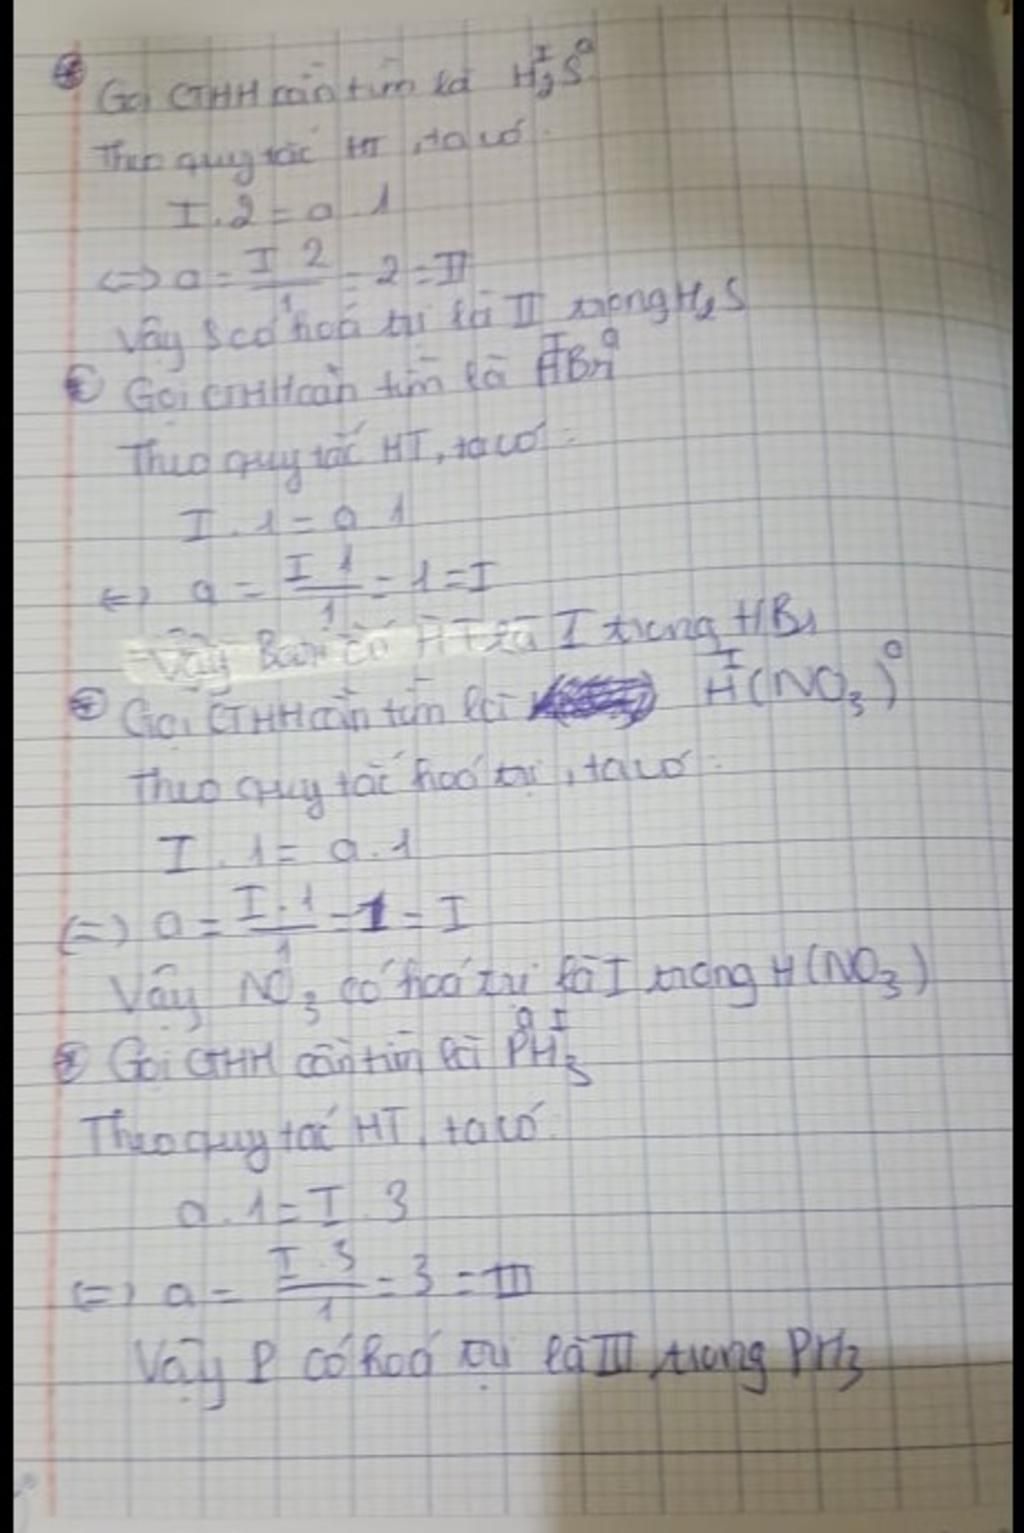 Gọi CTHH cần tìm là H₂S (I, a)
Theo quy tắc HT, ta có:
I . 2 = a . 1
<=> a = I . 2 / 1 = 2 = II
Vậy S có hoá trị là II trong H₂S
Gọi CTHH cần tìm là HBr (I, a)
Theo quy tắc HT, ta có:
I . 1 = a . 1
<=> a = I . 1 / 1 = 1 = I
Vậy có HT là I trong HBr
Gọi CTHH cần tìm là H(NO₃) (I, a)
Theo quy tắc hoá trị, ta có:
I . 1 = a . 1
(=) a = I . 1 / 1 = 1 = I
Vậy NO₃ có hoá trị là I trong H(NO₃)
Gọi CTHH cần tìm là PH₃ (a, I)
Theo quy tắc HT, ta có:
a . 1 = I . 3
(=) a = I . 3 / 1 = 3 = III
Vậy P có hoá trị là III trong PH₃